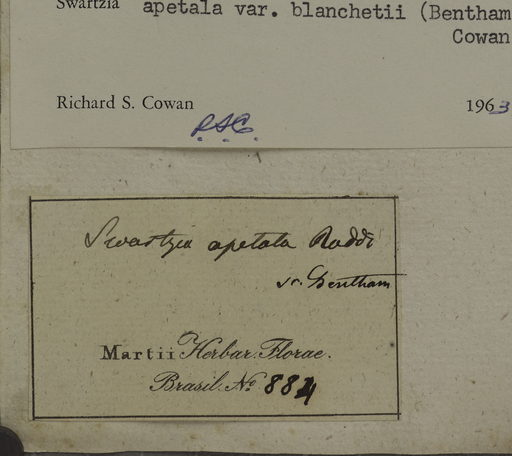 Swartzia apetala var. blanchetii (Bentham
Cowan
Richard S. Cowan 1963
RSC.
Swartzia apetala Raddi
Bentham
Martii Herbar. Florae.
Brasil. No 884